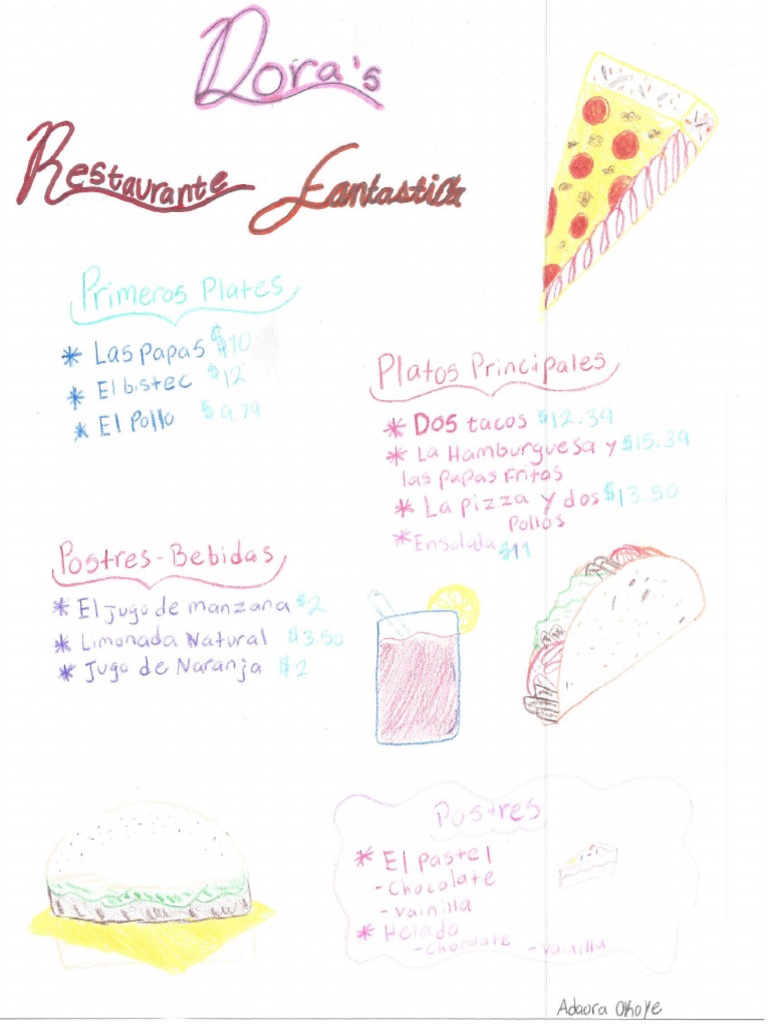 Dora's
Restaurante fantastica
Primeros Plates
* Las Papas $10
* El bistec $12
* El Pollo $9.79
Platos Principales
* Dos tacos $12.39
* La Hamburguesa y $15.39
las papas fritas
* La pizza y dos $13.50
Pollos
* Ensalada $11
Postres-Bebidas
* El jugo de manzana $2
* Limonada Natural $3.50
* Jugo de Naranja $2
Postres
* El pastel
- Chocolate
- Vainilla
* Helado
- Chocolate - Vainilla
Adaora Okoye